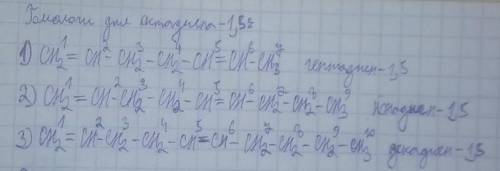 Гомологи для октадиена-1,5:
1) CH₂¹=CH²-CH₂³-CH₂⁴-CH⁵=CH⁶-CH₃⁷ гептадиен-1,5
2) CH₂¹=CH²-CH₂³-CH₂⁴-CH⁵=CH⁶-CH₂⁷-CH₂⁸-CH₃⁹ нонадиен-1,5
3) CH₂¹=CH²-CH₂³-CH₂⁴-CH⁵=CH⁶-CH₂⁷-CH₂⁸-CH₂⁹-CH₃¹⁰ декадиен-1,5